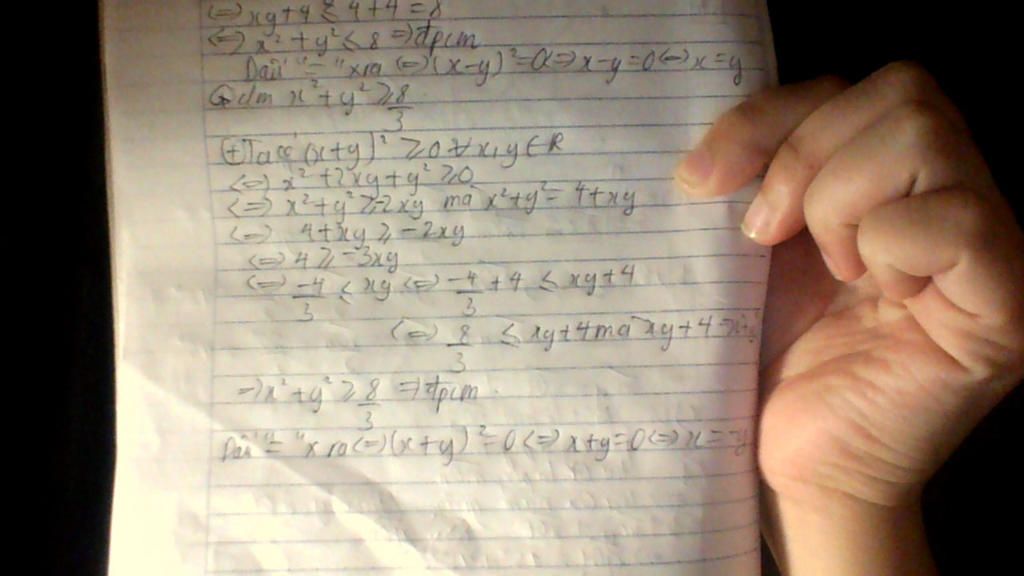 (=) xy+4 ≤ 4+4 = 8
(=) x² + y² ≤ 8 => đpcm
Dấu "=" xra (=) (x-y)² = 0 (=) x-y = 0 (=) x = y
cm x² + y² ≥ 8/3
(+) Ta có (x+y)² ≥ 0 ∀ x, y ∈ R
(=) x² + 2xy + y² ≥ 0
(=) x² + y² ≥ -2xy mà x² + y² = 4+xy
(=) 4+xy ≥ -2xy
(=) 4 ≥ -3xy
(=) -4/3 ≤ xy (=) -4/3 + 4 ≤ xy+4
(=) 8/3 ≤ xy+4 mà xy+4 =
=> x² + y² ≥ 8/3 => đpcm
Dấu "=" xra (=) (x+y)² = 0 (=) x+y = 0 (=) x = -y